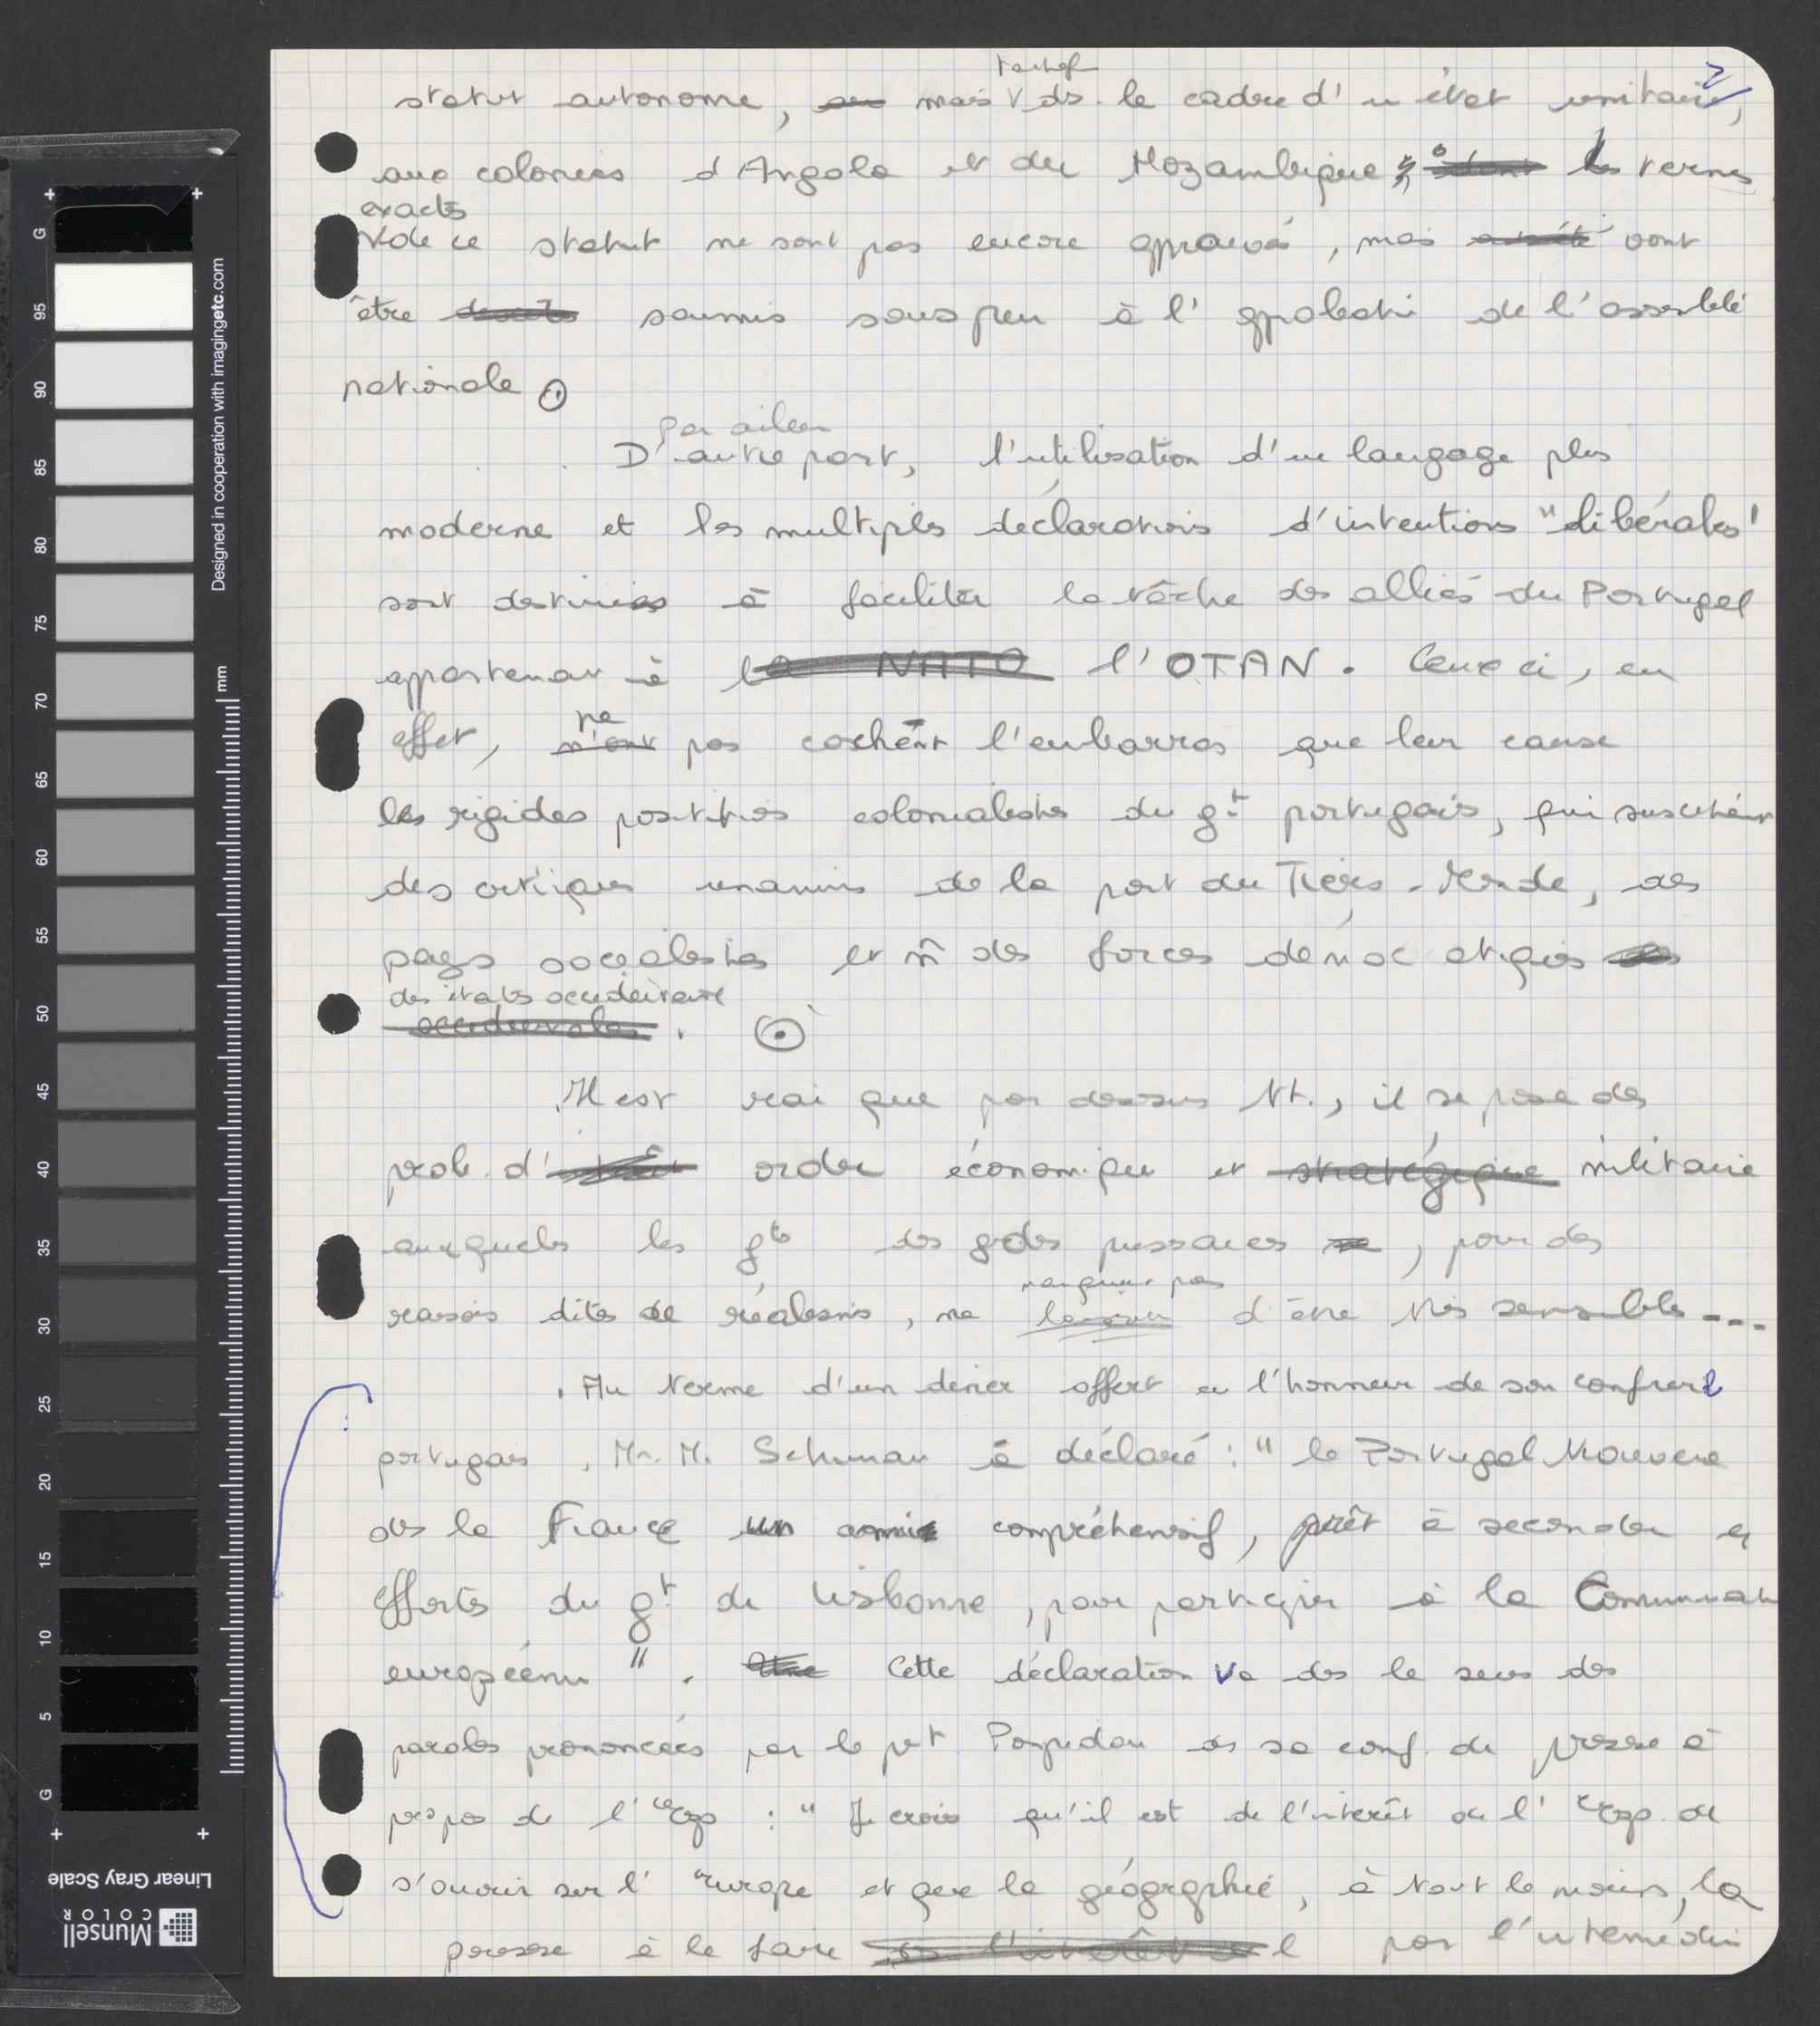 2/
statut autonome, mais ds. le cadre d'un état unitaire,
aux colonies d'Angola et du Mozambique ; les termes
exacts
de ce statut ne sont pas encore approuvés, mais vont
être soumis sous peu à l'approbati de l'assemblé
nationale
Par ailleu
D'autre part, l'utilisation d'un langage plus
moderne et les multiples déclarations d'intentions "libérales"
sont destinées à faciliter la tâche des alliés du Portugal
appartenant à la NATO l'OTAN. Ceux ci, en
ne
effet, n'ont pas cachent l'embarras que leur cause
les rigides positions colonialistes du gt portugais, qui suscitent
des critiques unanimes de la part du Tiers-Monde, des
pays socialistes et m̂ des forces démocratiques
des états occidentaux
occidentales.
Il est vrai que par dessus tt., il se pose des
prob. d' ordre économique et stratégique militaire
auxquels les gts des grdes puissances, pour des
manquent pas
raisons dites de réalisme, ne d'être très sensibles...
Au terme d'un diner offert en l'honneur de son confrere
portugais, Mr. M. Schuman à déclaré : "le Portugal trouvera
ds la France un ami compréhensif, prêt à seconder les
efforts du gt de Lisbonne, pour participer à la Communauté
européenne". Cette déclaration va ds le sens des
paroles prononcées par le pt Pompidou ds sa conf. de presse à
propos de l'Esp : "Je crois qu'il est de l'intérêt de l'Esp. de
s'ouvrir sur l'Europe et que la géographie, à tout le moins, la
pousse à le faire par l'intermédiai
Designed in cooperation with imagingetc.com
mm
G 95 90 85 80 75 70 65 60 55 50 45 40 35 30 25 20 15 10 5 G
Linear Gray Scale
Munsell
COLOR